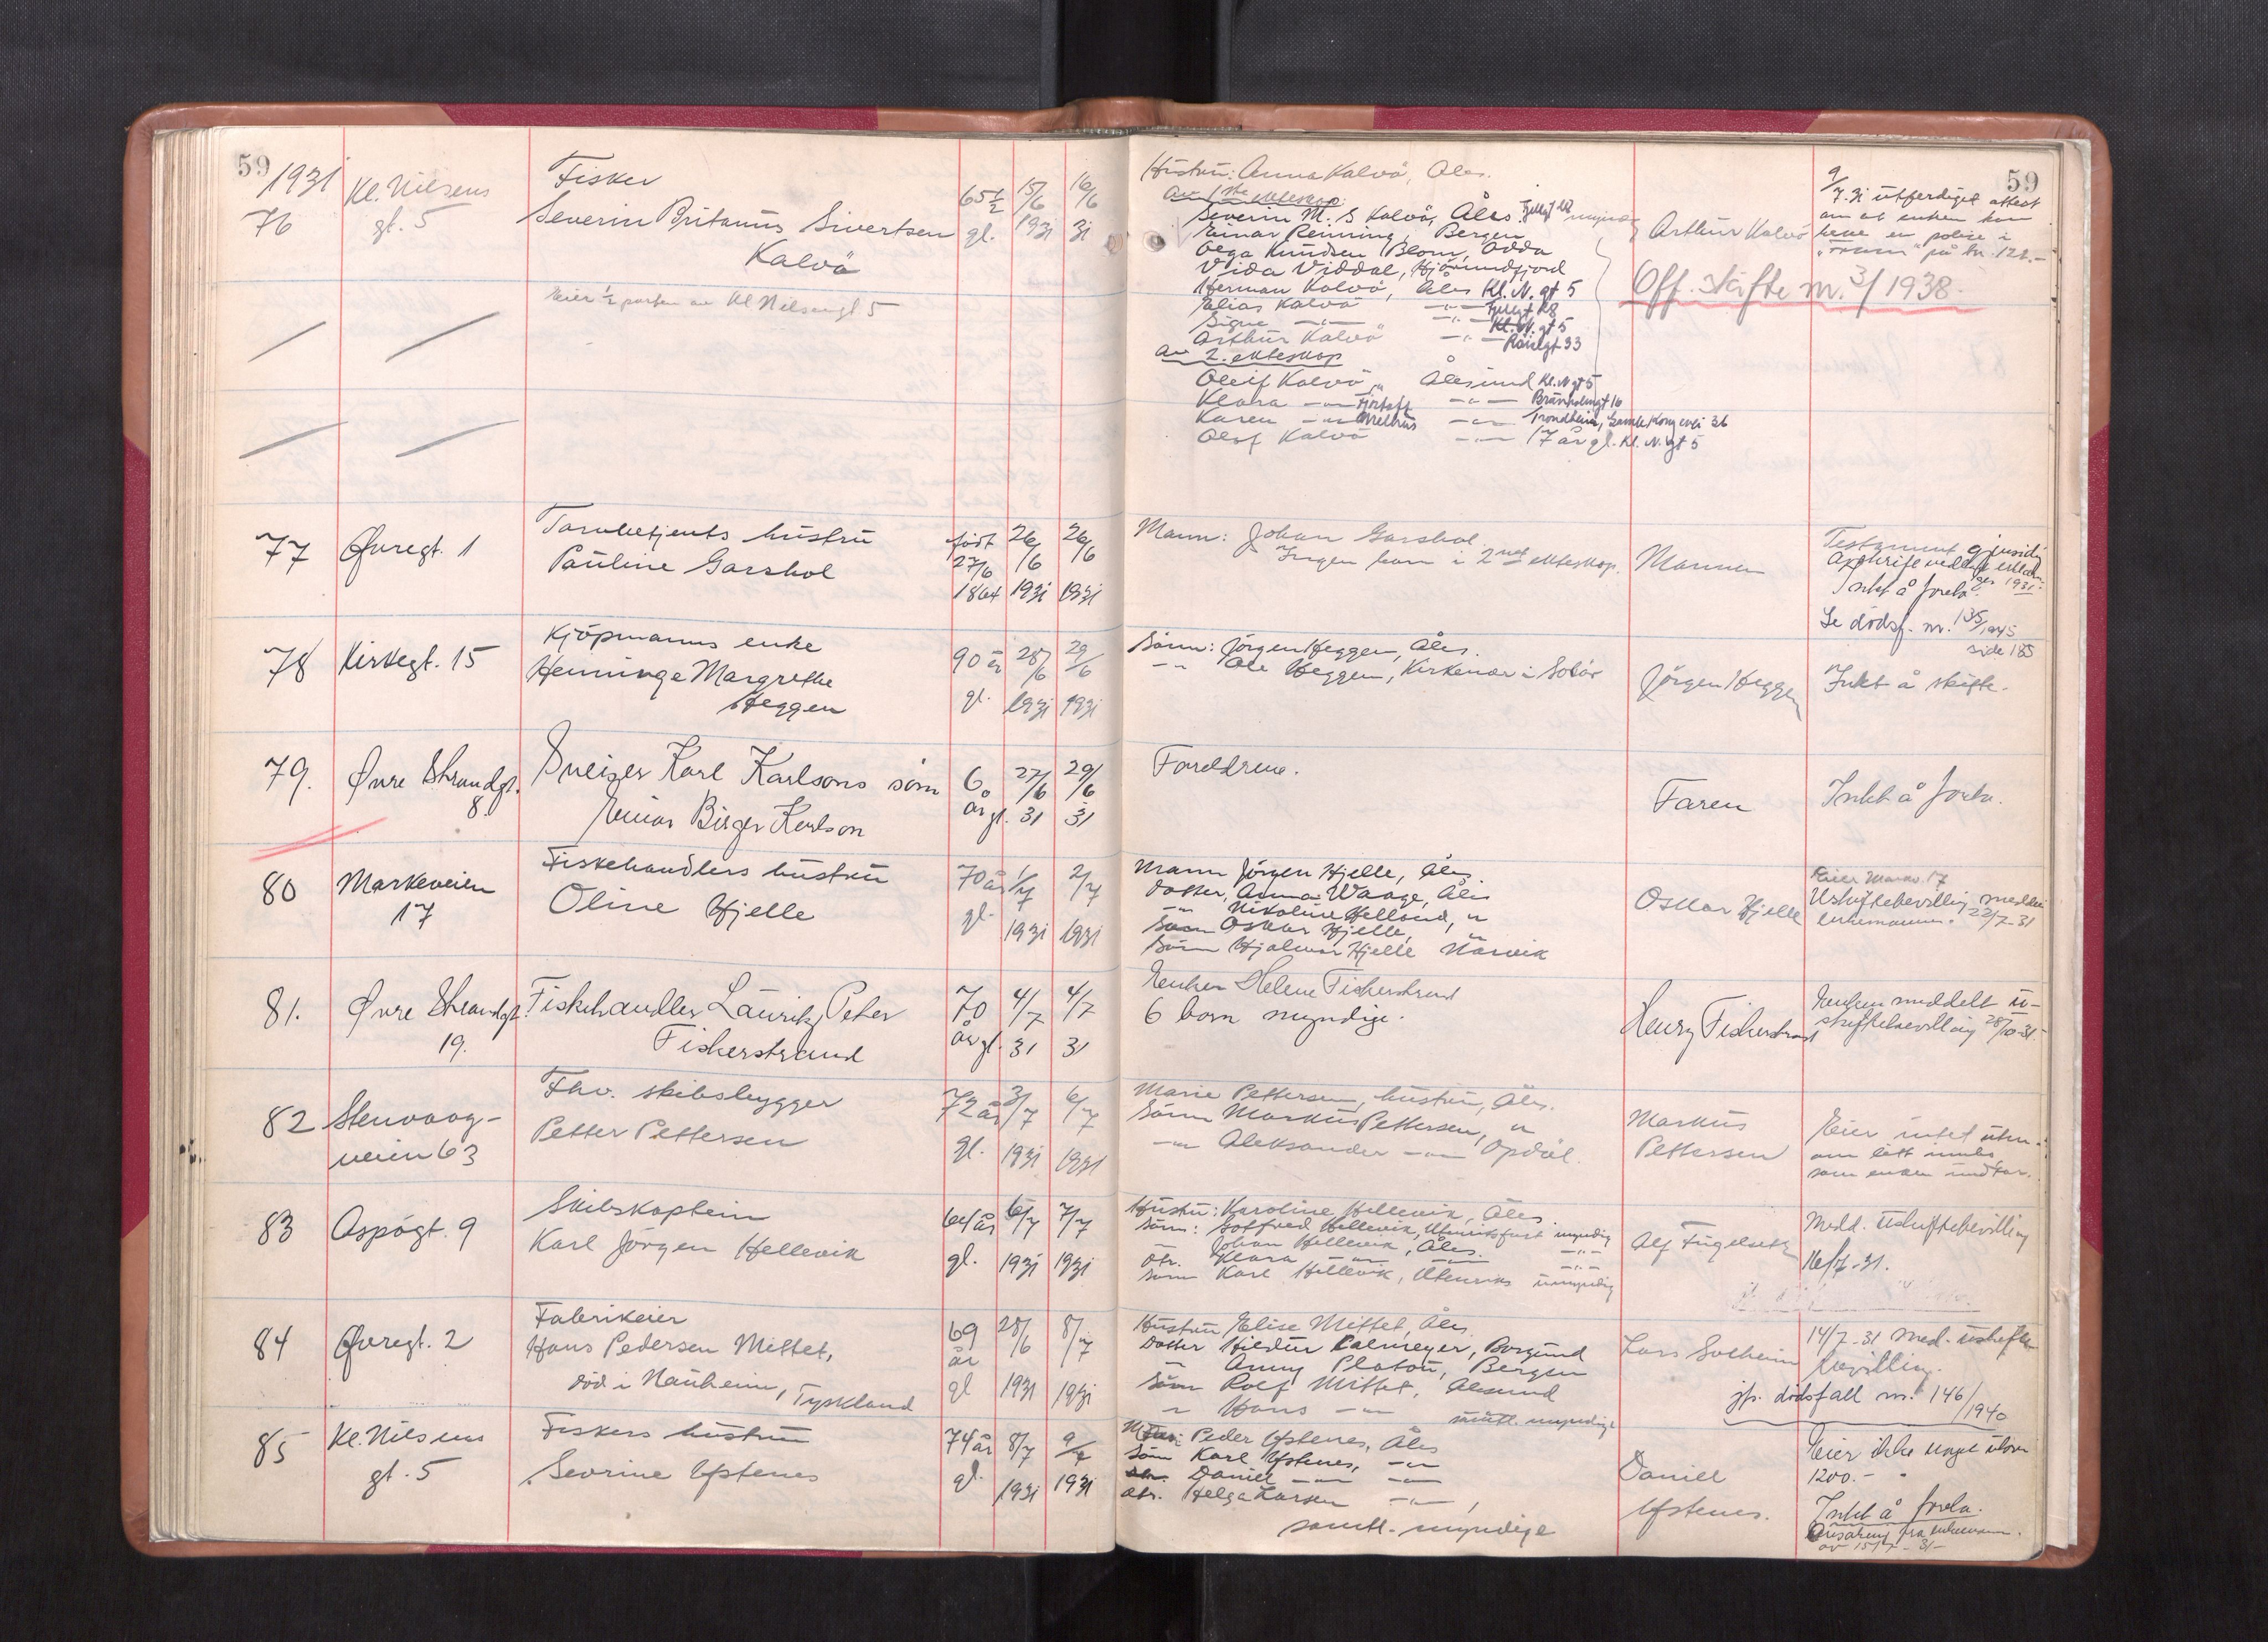 59
1931
76
Kl. Nilsens
gt. 5
Fisker
Severin Britanus Sivertsen
Kalvö
65½
gl.
15/6
1931
16/6
31
Eier ½ parten av Kl Nilsensgt 5
Hustru: Anna Kalvö, Åles.
Av 1ste ekteskap:
Severin M. S Kalvö, Åles. myndig
Einar Reinning, Bergen
Olga Knudsen Blom, Odda
Vida Viddal, Hjörundfjord
Herman Kalvö, Åles Kl. N. gt 5
Elias Kalvö
Signe —"— Kl. N. gt 5
Arthur Kalvö
Av 2. ekteskap
Oleif Kalvö, Ålesund Kl. N gt 5
Klara —"— Fjörtoft
Karen —"— Trondheim,
Olaf Kalvö —"— 17 år gl. Kl. N. gt 5
Arthur Kalvö
9/7.31 utferdiget attest
om at enken kan
heve en polise i
på kr. 122.-
59
Off. skifte nr. 3/1938.
77
Øvregt. 1
Tarnbetjents hustru
Pauline Garshol
født
27/6
1864
26/6
1931
26/6
1931
Mann: Johan Garshol.
Ingen barn i 2net ekteskap.
Mannen
Intet å foreta.
Se dödsf. nr. 135/1945
side 185
78
Kirkegt. 15
Kjöpmanns enke
Henninge Margrethe
Heggen
90 år
gl.
28/6
1931
29/6
1931
Sönn: Jörgen Heggen, Åles.
—"— Ole Heggen, Kirkenær i Solör
Jörgen Heggen
Intet å skifte.
79.
Øvre Strandgt.
8.
Sveiser Karl Karlsons sönn
Einar Birger Karlson
6
år gl.
27/6
31
29/6
31
Foreldrene.
Faren
Intet å foreta.
80
Markeveien
17
Fiskehandlers hustru
Oline Hjelle
70 år
gl.
1/7
1931
2/7
1931
Mann Jörgen Hjelle, Åles
Datter, Anna Waage, Åles
—"— Nikoline Helland, "
Sönn Oskar Hjelle, "
Sönn Hjalmar Hjelle Narvik
Oskar Hjelle
Eier Markv. 17
Uskiftebevilling meddelt
enkemannen. 22/7-31
81.
Øvre Strandgt.
19.
Fiskehandler Laurits Peter
Fiskerstrand
70
år gl.
4/7
31
4/7
31
Enken Helene Fiskerstrand
6 barn myndige.
Henry Fiskerstrand
Enken meddelt u-
skiftebevilling 28/10-31.
82
Stenvaag-
veien 63
Fhv. skibsbygger
Petter Pettersen
72 år
gl.
3/7
1931
6/7
1931
Marie Pettersen, hustru, Åles.
Sönn Markus Pettersen, "
—"— Aleksander —"— Opdal.
Markus
Pettersen
Eier intet uten-
om litt innbo,
som enken
83
Aspögt. 9
Skibskaptein
Karl Jörgen Hellevik
64 år
gl.
6/7
1931
7/7
1931
Hustru: Karoline Hellevik, Åles.
Sönn: Gotfred Hellevik, Utenriksfart myndig
Johan Hellevik, Åles. —"—
Dtr. Klara —"— —"— —"—
Sönn Karl Hellevik, Utenriks umyndig
Alf Fugelseth
Medd. uskiftebevilling
16/7-31.
84
Øvregt. 2
Fabrikeier
Hans Pedersen Mittet,
död i Nauheim, Tyskland
69
år
gl
28/6
1931
8/7
1931
Hustru Elise Mittet, Åles.
Datter Hjerdur Calmeyer, Borgund
" Anny Platou, Bergen
Sönn Rolf Mittet, Ålesund
" Hans —"— samtl. myndige
Lars Solheim
14/7-31 med. uskifte-
bevilling.
jfr. dødsfall nr. 146/1940
85
Kl. Nilsens
gt. 5
Fiskers hustru
Sevrine Ystenes
74 år
gl.
8/7
1931
9/7
1931
Mann: Peder Ystenes, Åles
Sönn Karl Ystenes, —"—
Daniel —"— —"—
dtr. Helga Larsen —"—,
samtl. myndige
Daniel
Ystenes.
Eier ikke noget utover
1200.-
Intet å foreta.
fra enkemann.
av 15/7-31-